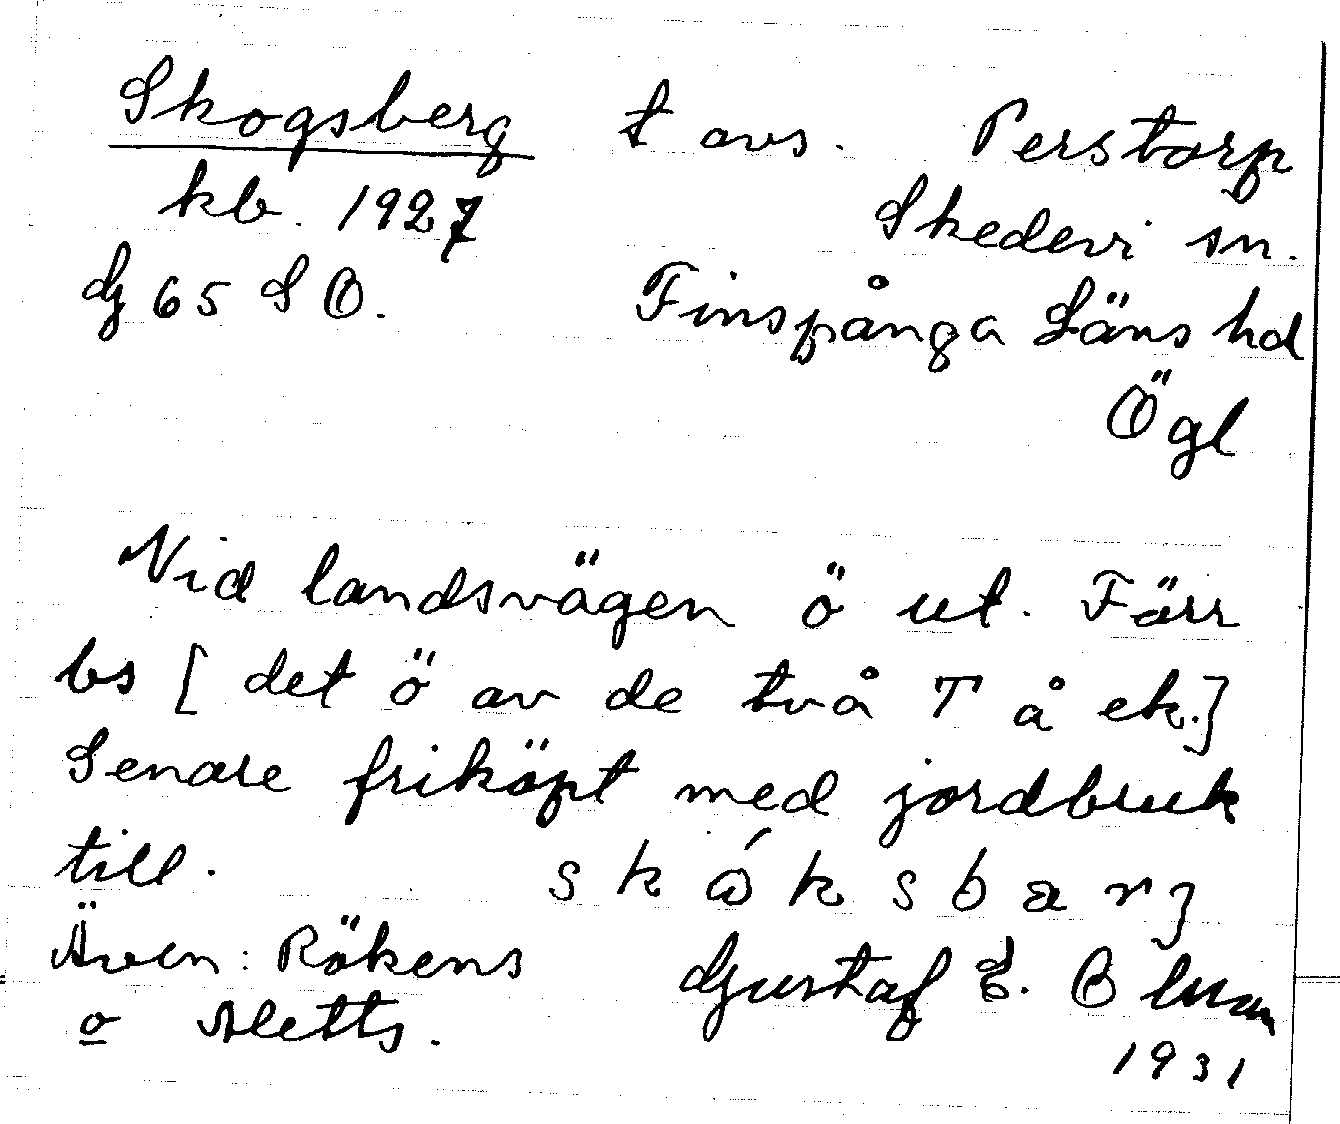 Skogsberg t avs. Perstorp
kb. 1927 Skedevi sn.
G 65 S O. Finspånga Läns hd
Ögl
Vid landsvägen ö ut. Förr
bs [det ö av de två T å ek.]
Senare friköpt med jordbruk
till. skåksbarj
Även: Rökens
o Aletts. Gustaf E. Blman
1931